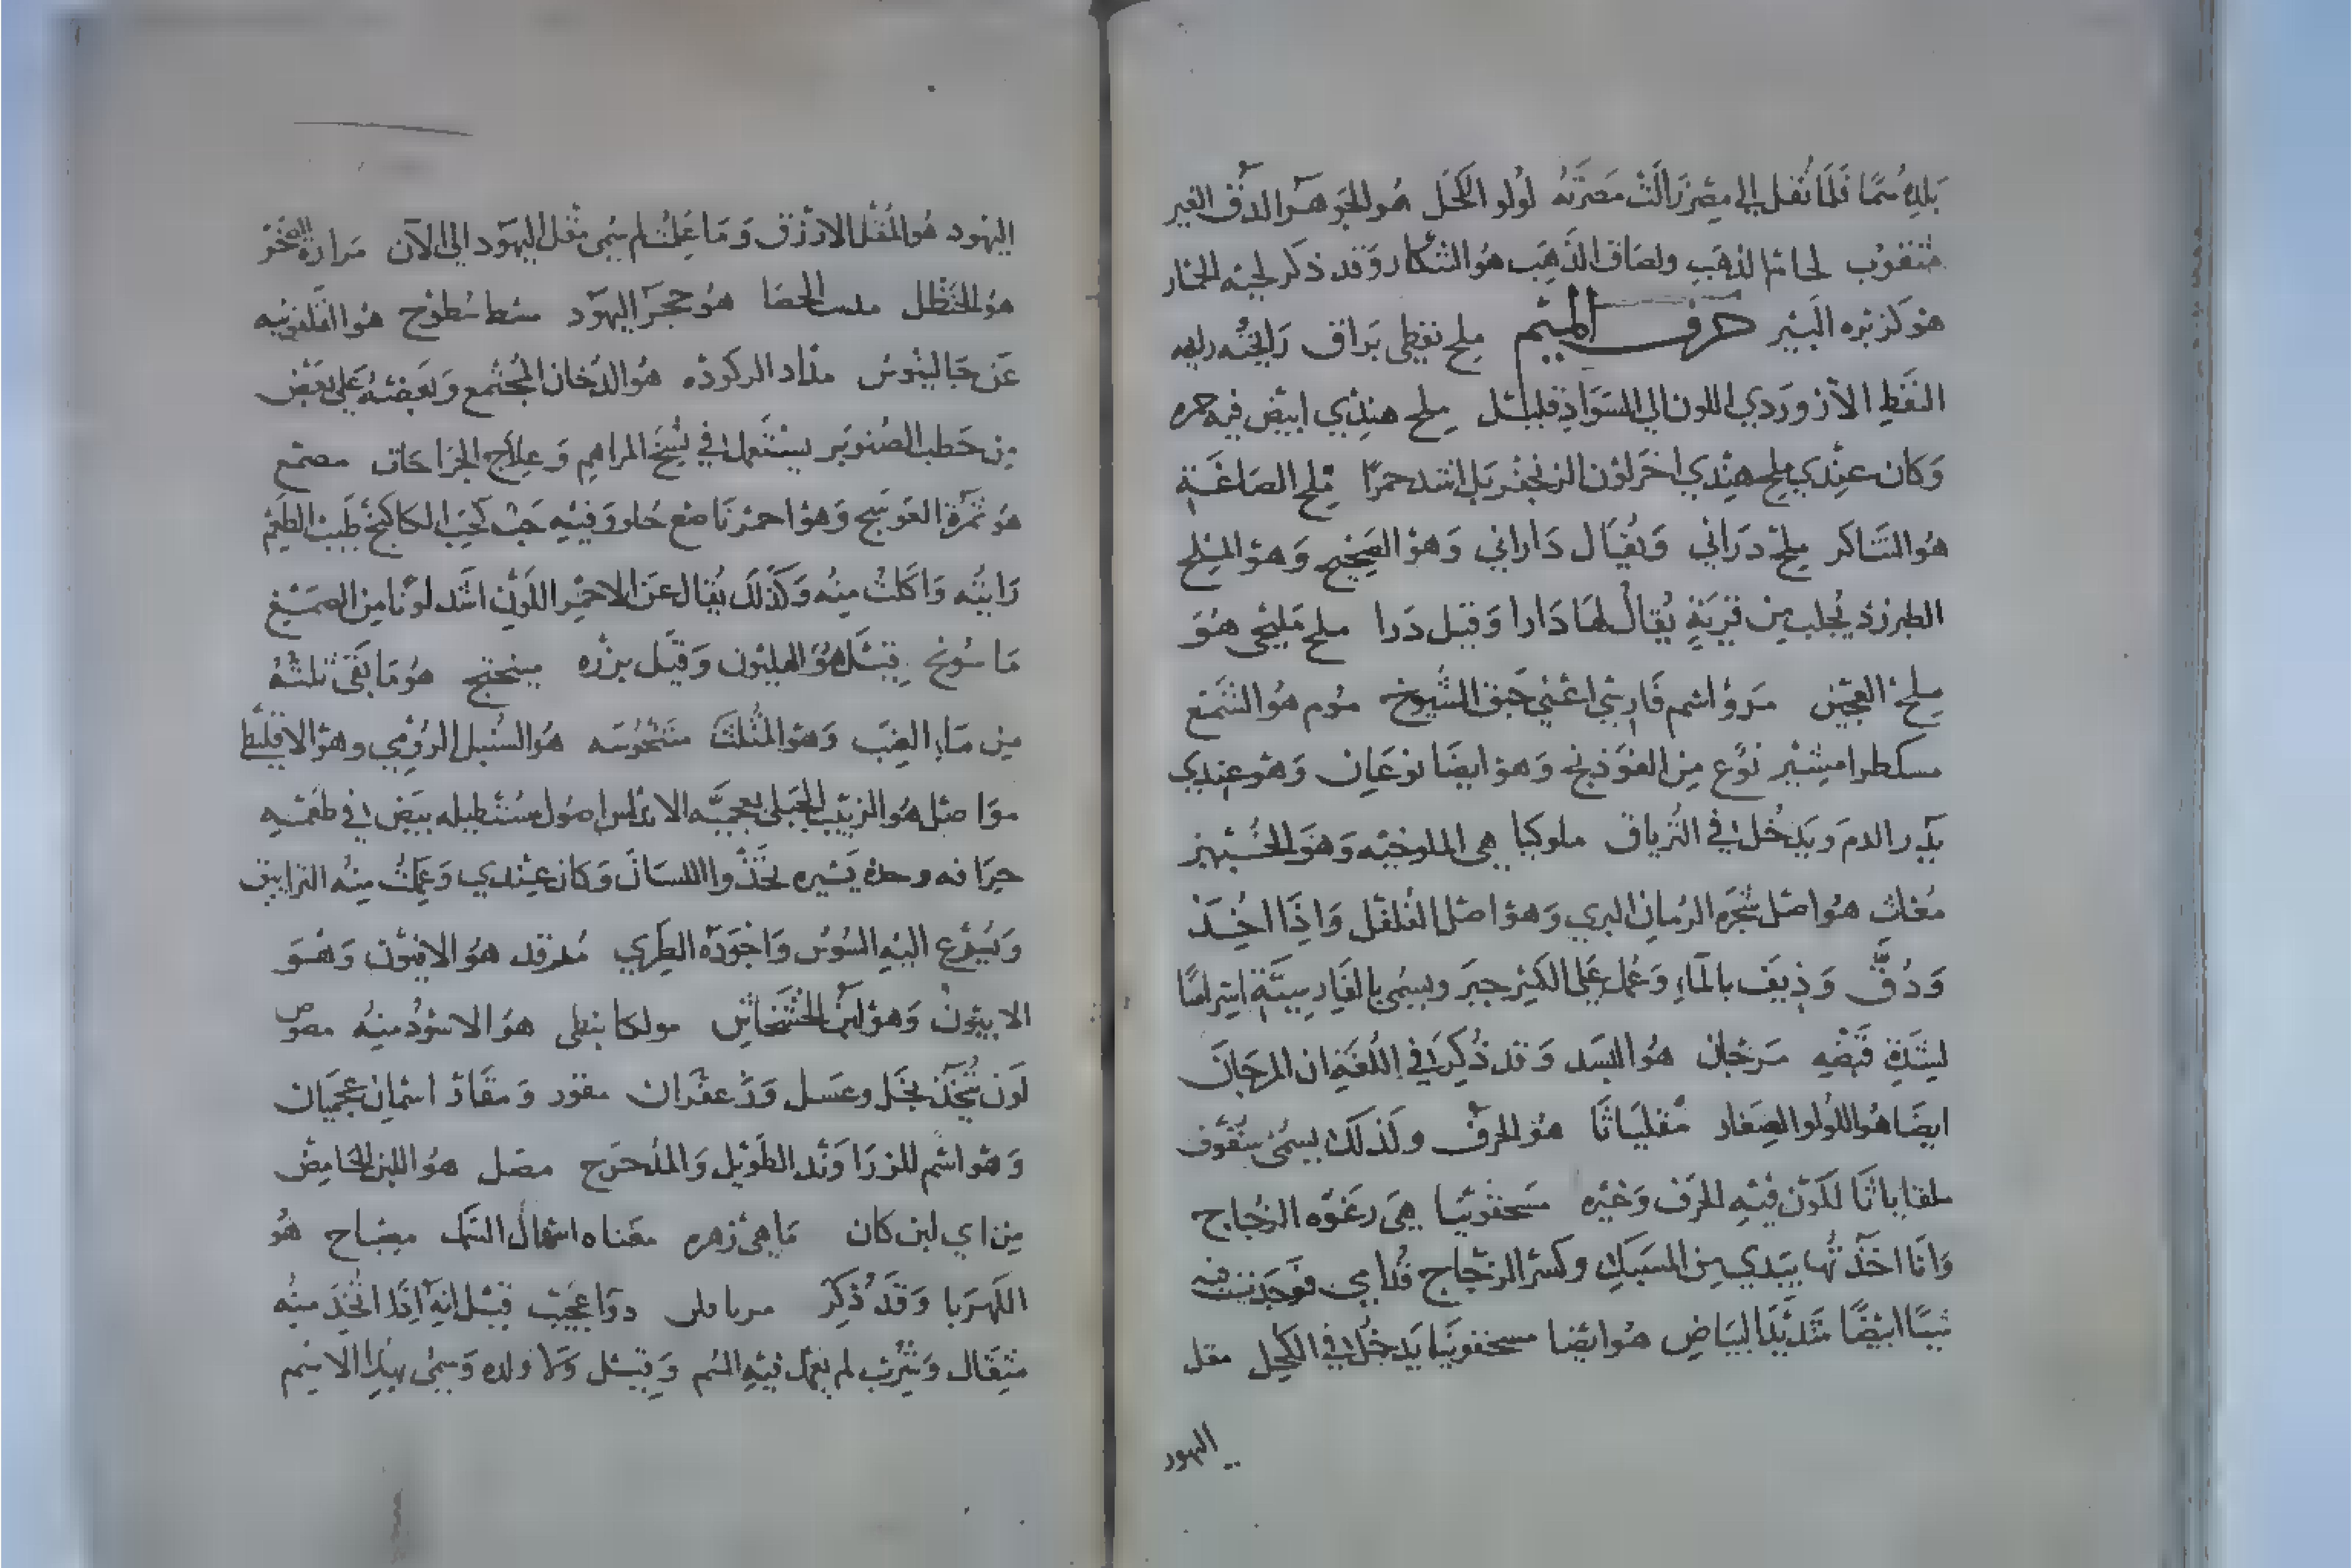 بَلَدِهُ سَمًّا فَلَمَا نُقل الى مِصْرَ زَالَت مَضَرَّتهُ لُولُو الكحل هُو الجوهَر الدَق الغير
مثقوب لحام الذهَبِ ولصَاق الذَهَب هوَ التنكار وَقد ذكر لحيَه الحمَار
هو كزبَره البير حرف الميم ملح نفطي بَراق رَايحتُه رايحه
النَفط الازوَردي اللون الى السَوَاد قليل ملح هندِي ابيض فيه حمره
وَكان عِندِي ملح هِندِي اخَر لون الزنجُفر بَل اشد حمرًا مِلح الصَاغَة
هُو التنَاكر ملح دَرَاني وَيُقَال دَاراني وَهوَ الصحِيح وَهوَ المِلح
الطبرزذ يُجلب مِن قريَةٍ يُقالُ لهَا دَارا وَقيل دَرا ملح مَليحي هُوَ
ملح العجين مَرو اسم فَارسي اعني حَبق الشيوخ مُوم هُو الشمَع
مسكطرامشير نوَع مِن الفوَذنج وَهوَ ايضَا نوعَان وَهو عِندِي
يدِر الدم وَيَدخُل في التُرياق ملوكيا هي الملوخيَه وَهوَ الخُبَيز
مُغاث هُو اصَل شجَره الرمان البري وَهوَ اصل الفُلفُل وَاذَا اخِذ
وَدُقَّ وَذِيَف بالمَاءِ وَعُمل عَلى الكسر جبَر ويسمى بالفَارِسِيَّة اسراسًا
لشدَةِ قبَضهِ مَرجان هوُ البُسَد وَقد ذُكِرَ في اللغَةِ ان المرجَان
ايضَا هُو اللُولو الصِغار مُقليَاثَا هوُ الحرف ولذلَك يسمَى سَفوف
مقلياثَا لكوَن فيهِ الحرَف وَغيره مَسحقونيَا هيَ رغوَه الزجَاج
وَانَا اخَذتُها بيَدي مِن المسَبك وكسرَ الزجَاج قُدامي فوجَدت فيه
شيًا ابيضًا شديد البيَاض هوَ ايضا مسحقونيَا يَدخُل في الكحل مقل
اليهود
اليَهود هُو المُقل الازرَق وَمَا عَلِمت لم سُمي مُقل اليَهَود الى الآن مَرارة الصخر
هوُ الحنظل ملسب الحصَا هُو حجَر اليَهوَد مشطا شطوح هوُ القلقونيه
عَن جَالينوس مدَاد الركوده هُو الدُخان المجتمع وَبَعضهُ عَلى بَعض
مِن حَطب الصُنوبَر يستَعمل في نسخ المراهِم وَعِلاَج الجَراحَات مصَع
هوَ ثمَرة العَوسَج وَهو احمَر نَاصع حلو وَفيهِ حَبْ كحَب الكاكنج طَيب الطعِم
رَايتُه وَاكلتْ مِنُه وَكذَلَك يُقال عَن الاحمَر اللوَن اشَد لوَنا مِن الصَمَغ
مَا سُونج قيَل هُوَ الهليَون وَقيَل بزره ميبختج هُو مَا بَقى ثلثُهُ
مِن مَاءِ العِنَب وَهوَ المُثلث منَتجُوسَه هوَ السُنبل الرُوِمي وهوَ الاقليطا
موَاصل هُو الزبيب الجبَلي بعجميَّه الاندلس اصُول مستطيله بيَض في طعَمهِ
حَرافه وحدَه يَسيره تحَذُو اللسَان وَكان عِندي وَعملت مِنُه الترَايق
وَيُسرِع اليهِ السُوس وَاجوَدُه الطَري مُرقد هوَ الافيوَن وَهُو
الابيوَن وَهوَ لبن الخشخاش مولكا بنطى هوَ الاسوَد مِنهُ مصوص
لَون يُتخَذ بخَل وعسَل وَزَعفرَان مقور وَمقَاد اسمَان عجميَان
وَهُو اسَم للزرَاوَند الطوَيل وَالمُدَحرَج مصَل هُو اللبن الحَامِض
مِن اي لبن كان مَاهي زهره معَناه اسَهال السَمك مصبَاح هُو
الكهربا وَقَد ذُكِر مرياملى دوَا عَجيب قِيل انِهُ اذَا اتُخِذ مِنُه
مثِقَال وَشُرب لم يعَمل فيهِ السُم وَقيَل وَلا ولده وَسمِي بهذا الاسم